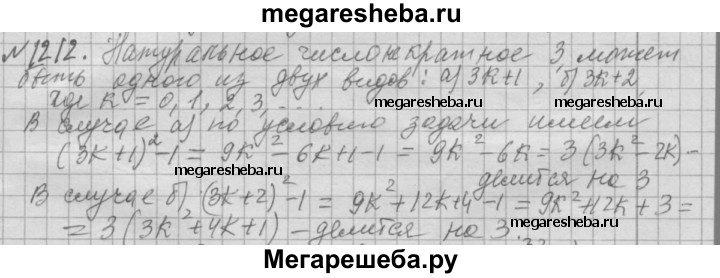 megaresheba.ru
№1212. Натуральное число не кратное 3 может
быть одного из двух видов: а) 3k+1, б) 3k+2,
где k = 0, 1, 2, 3, ...
megaresheba.ru megaresheba.ru
В случае а) по условию задачи имеем
(3k+1)²-1 = 9k²-6k+1-1 = 9k²-6k = 3(3k²-2k) -
делится на 3
В случае б) (3k+2)²-1 = 9k²+12k+4-1 = 9k²+12k+3 =
megaresheba.ru megaresheba.ru
= 3(3k²+4k+1) - делится на 3.
Мегарешеба.ру